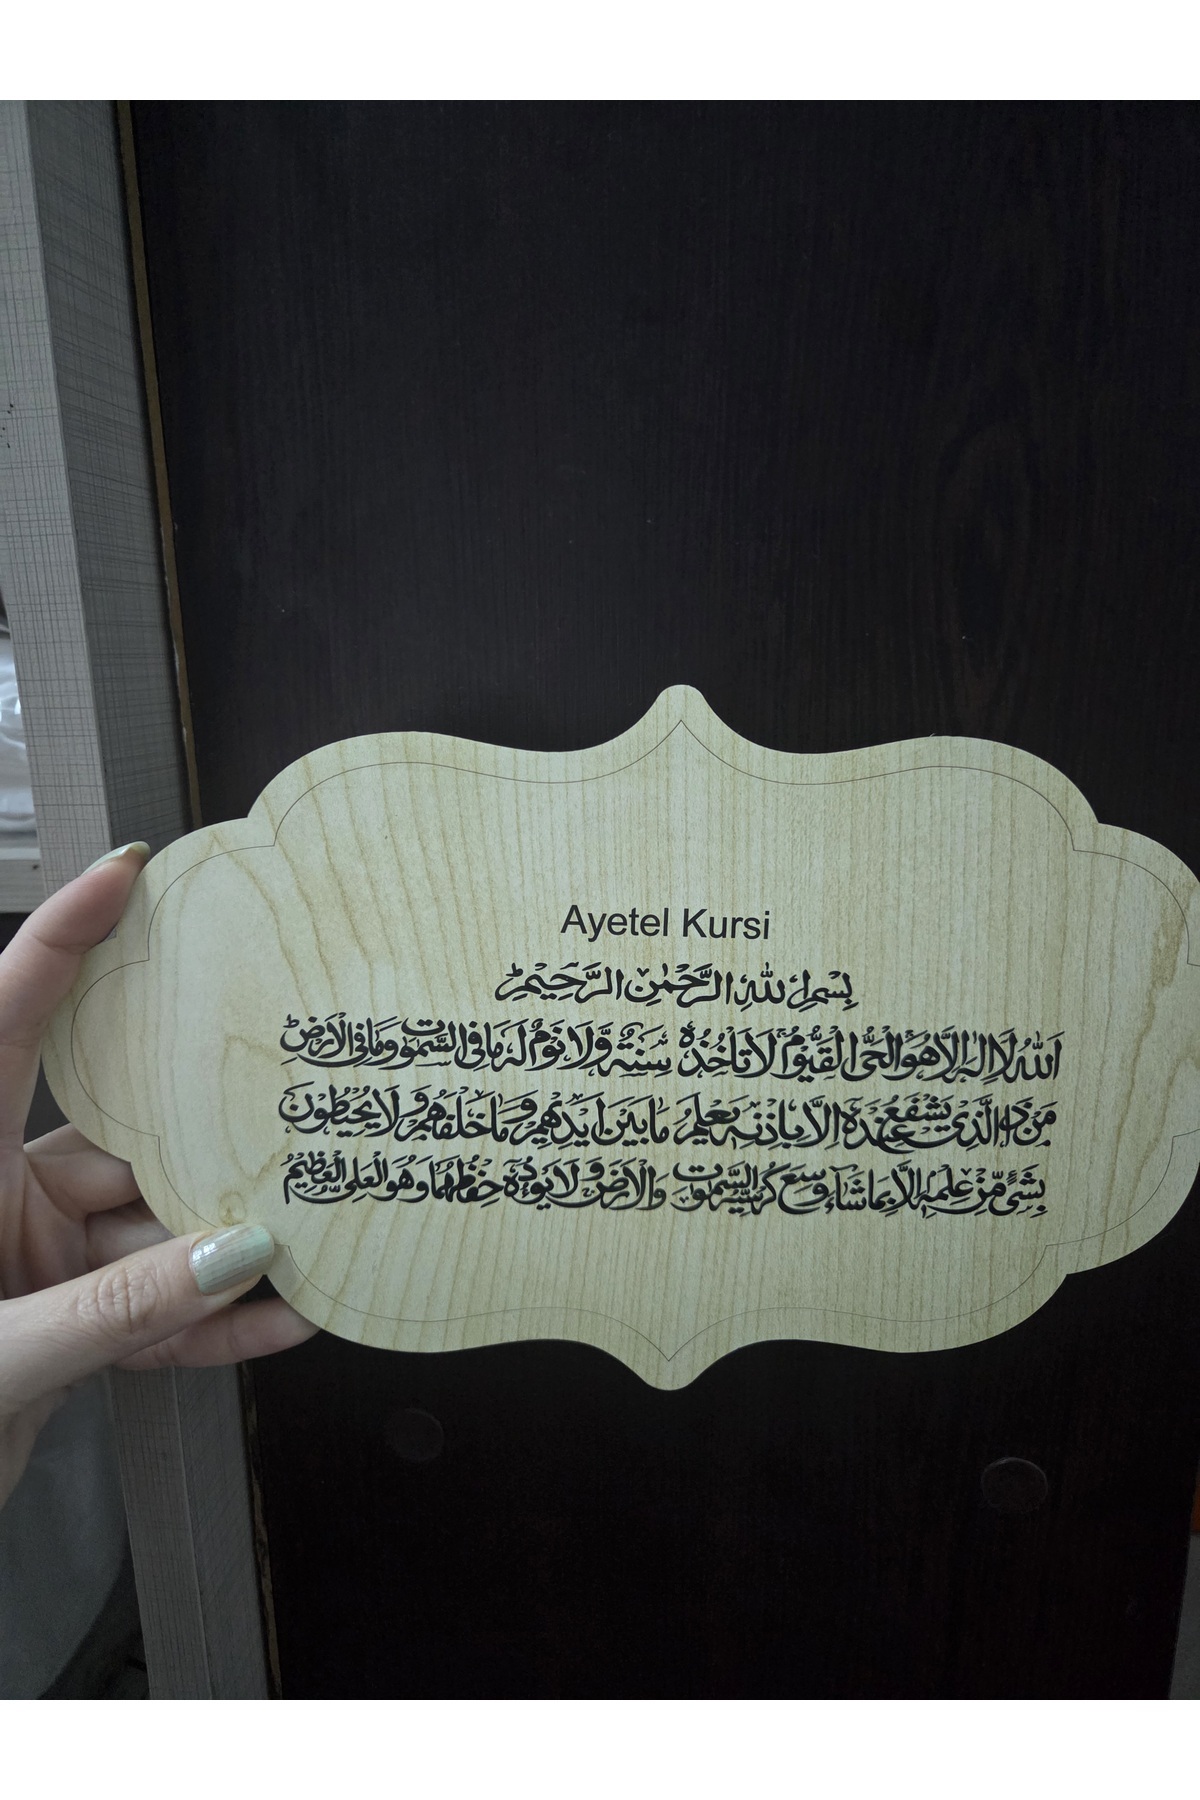 Ayetel Kursi
بِسْمِ اللّٰهِ الرَّحْمٰنِ الرَّحِيْمِ
اَللّٰهُ لَا اِلٰهَ اِلَّا هُوَ الْحَىُّ الْقَيُّوْمُ لَا تَاْخُذُهٗ سِنَةٌ وَّلَا نَوْمٌ لَهٗ مَا فِى السَّمٰوٰتِ وَمَا فِى الْاَرْضِ
مَنْ ذَا الَّذِىْ يَشْفَعُ عِنْدَهٗ اِلَّا بِاِذْنِهٖ يَعْلَمُ مَا بَيْنَ اَيْدِيْهِمْ وَمَا خَلْفَهُمْ وَلَا يُحِيْطُوْنَ
بِشَىْءٍ مِّنْ عِلْمِهٖ اِلَّا بِمَا شَآءَ وَسِعَ كُرْسِيُّهُ السَّمٰوٰتِ وَالْاَرْضَ وَلَا يَـُٔوْدُهٗ حِفْظُهُمَا وَهُوَ الْعَلِىُّ الْعَظِيْمُ